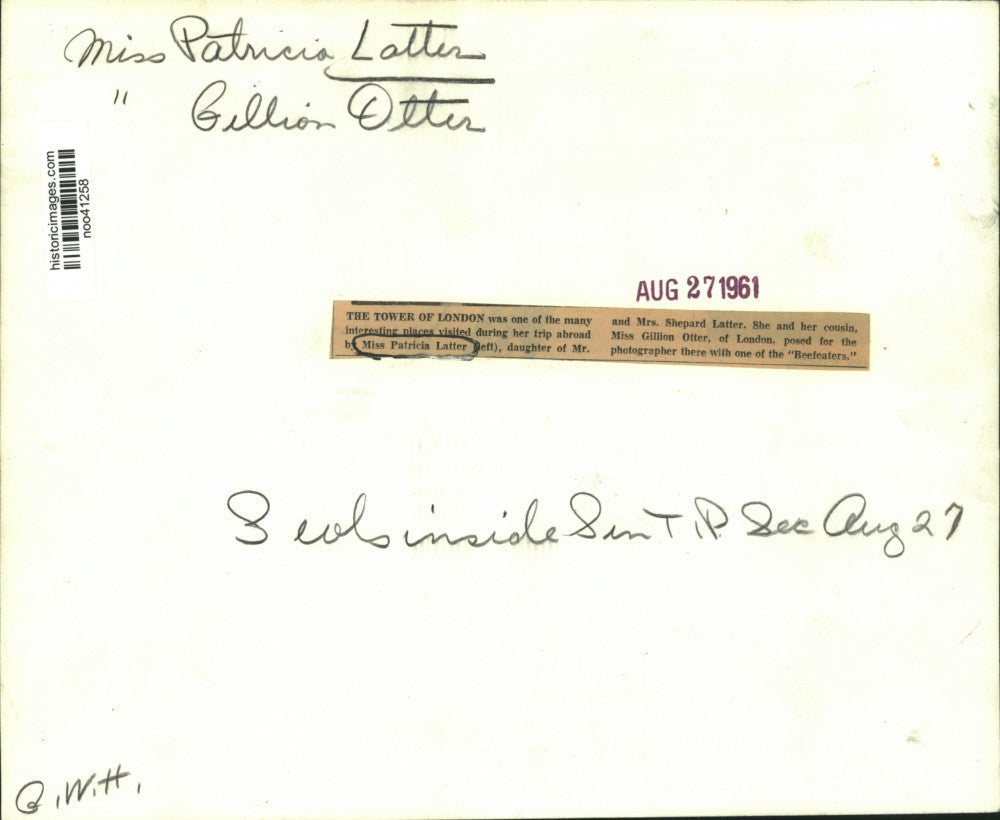 Miss Patricia Latter
" Gillion Otter
historicimages.com
noo41258
AUG 27 1961
THE TOWER OF LONDON was one of the many
interesting places visited during her trip abroad
by Miss Patricia Latter (left), daughter of Mr.
and Mrs. Shepard Latter. She and her cousin,
Miss Gillion Otter, of London, posed for the
photographer there with one of the "Beefeaters."
3 cols inside Sun T.P. Sec Aug 27
G.W.H.